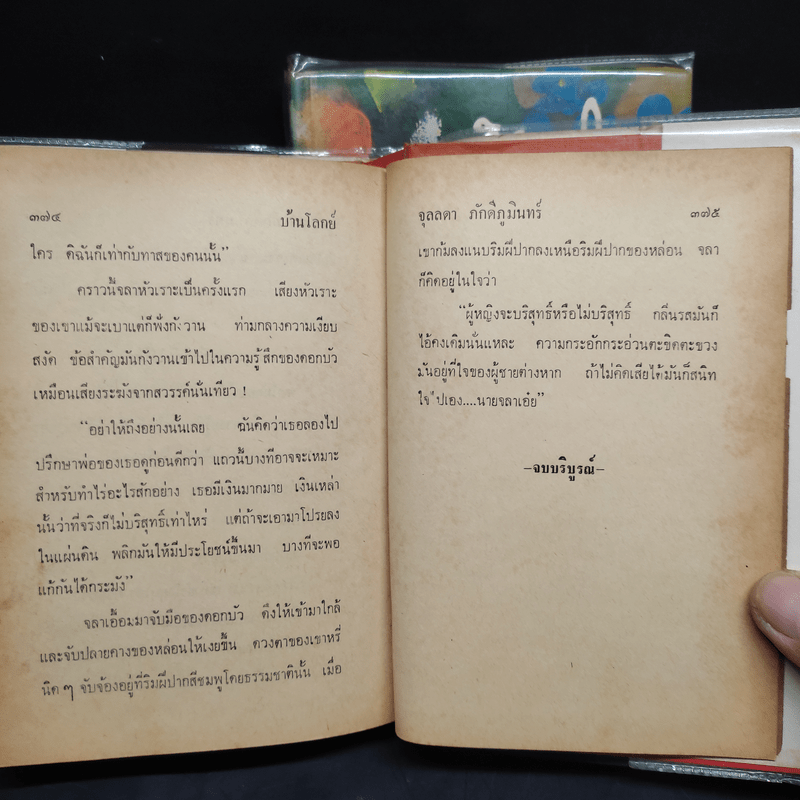 ๓๗๔ บ้านโลกย์
ใคร ดิฉันก็เท่ากับทาสของคนนั้น”
คราวนี้จลาหัวเราะเป็นครั้งแรก เสียงหัวเราะ
ของเขาแม้จะเบาแต่ก็ฟังกังวาน ท่ามกลางความเงียบ
สงัด ข้อสำคัญมันกังวานเข้าไปในความรู้สึกของดอกบัว
เหมือนเสียงระฆังจากสวรรค์นั่นเทียว !
“อย่าให้ถึงอย่างนั้นเลย ฉันคิดว่าเธอลองไป
ปรึกษาพ่อของเธอดูก่อนดีกว่า แถวนี้บางทีอาจจะเหมาะ
สำหรับทำไร่อะไรสักอย่าง เธอมีเงินมากมาย เงินเหล่า
นั้นว่าที่จริงก็ไม่บริสุทธิ์เท่าไหร่ แต่ถ้าจะเอามาโปรยลง
ในแผ่นดิน พลิกมันให้มีประโยชน์ขึ้นมา บางทีจะพอ
แก้กันได้กระมัง”
จลาเอื้อมมาจับมือของดอกบัว ดึงให้เข้ามาใกล้
และจับปลายคางของหล่อนให้เงยขึ้น ดวงตาของเขาหรี่
นิด ๆ จับจ้องอยู่ที่ริมฝีปากสีชมพูโดยธรรมชาตินั้น เมื่อ
จุลลดา ภักดีภูมินทร์ ๓๗๕
เขาก้มลงแนบริมฝีปากลงเหนือริมฝีปากของหล่อน จลา
ก็คิดอยู่ในใจว่า
“ผู้หญิงจะบริสุทธิ์หรือไม่บริสุทธิ์ กลิ่นรสมันก็
ไอ้คงเดิมนั่นแหละ ความกระอักกระอ่วนตะขิดตะขวง
มันอยู่ที่ใจของผู้ชายต่างหาก ถ้าไม่คิดเสียได้มันก็สนิท
ใจไปเอง....นายจลาเอ๋ย”
–จบบริบูรณ์–